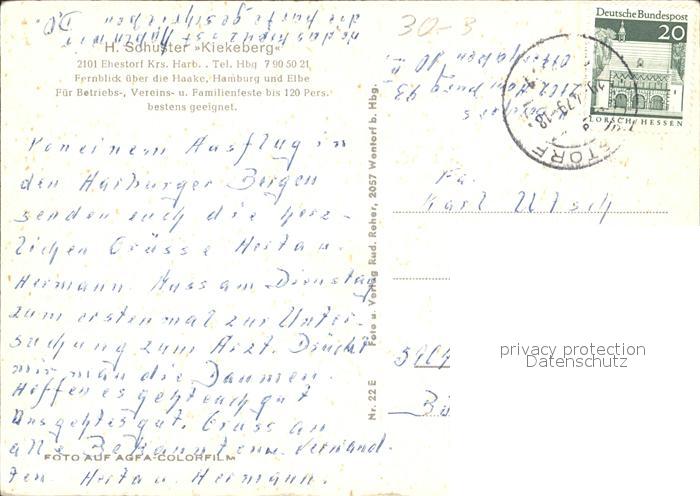 H. Schuster »Kiekeberg«
2101 Ehestorf Krs. Harb. . Tel. Hbg 7 90 50 21
Fernblick über die Haake, Hamburg und Elbe
Für Betriebs-, Vereins- u. Familienfeste bis 120 Pers.
bestens geeignet.
30-3
Deutsche Bundespost
20
LORSCH/HESSEN
STORF
Von einem Ausflug in
den Harburger Bergen
senden euch die herz-
lichen Grüsse Herta u.
Hermann. Muss am Dienstag
zum erstenmal zur Unter-
suchung zum Arzt. Drückt
mir man die Daumen.
Hoffen es geht euch gut
uns geht es gut. Gruss an
alle Bekannten u. Verwand-
ten Herta u. Hermann.
die Karte geschrieben
Hamburg 93
Fa.
Karl Ulsch
Foto u. Verlag Rud. Reher, 2057 Wentorf b. Hbg.
Nr. 22 E
FOTO AUF AGFA-COLORFILM
privacy protection
Datenschutz